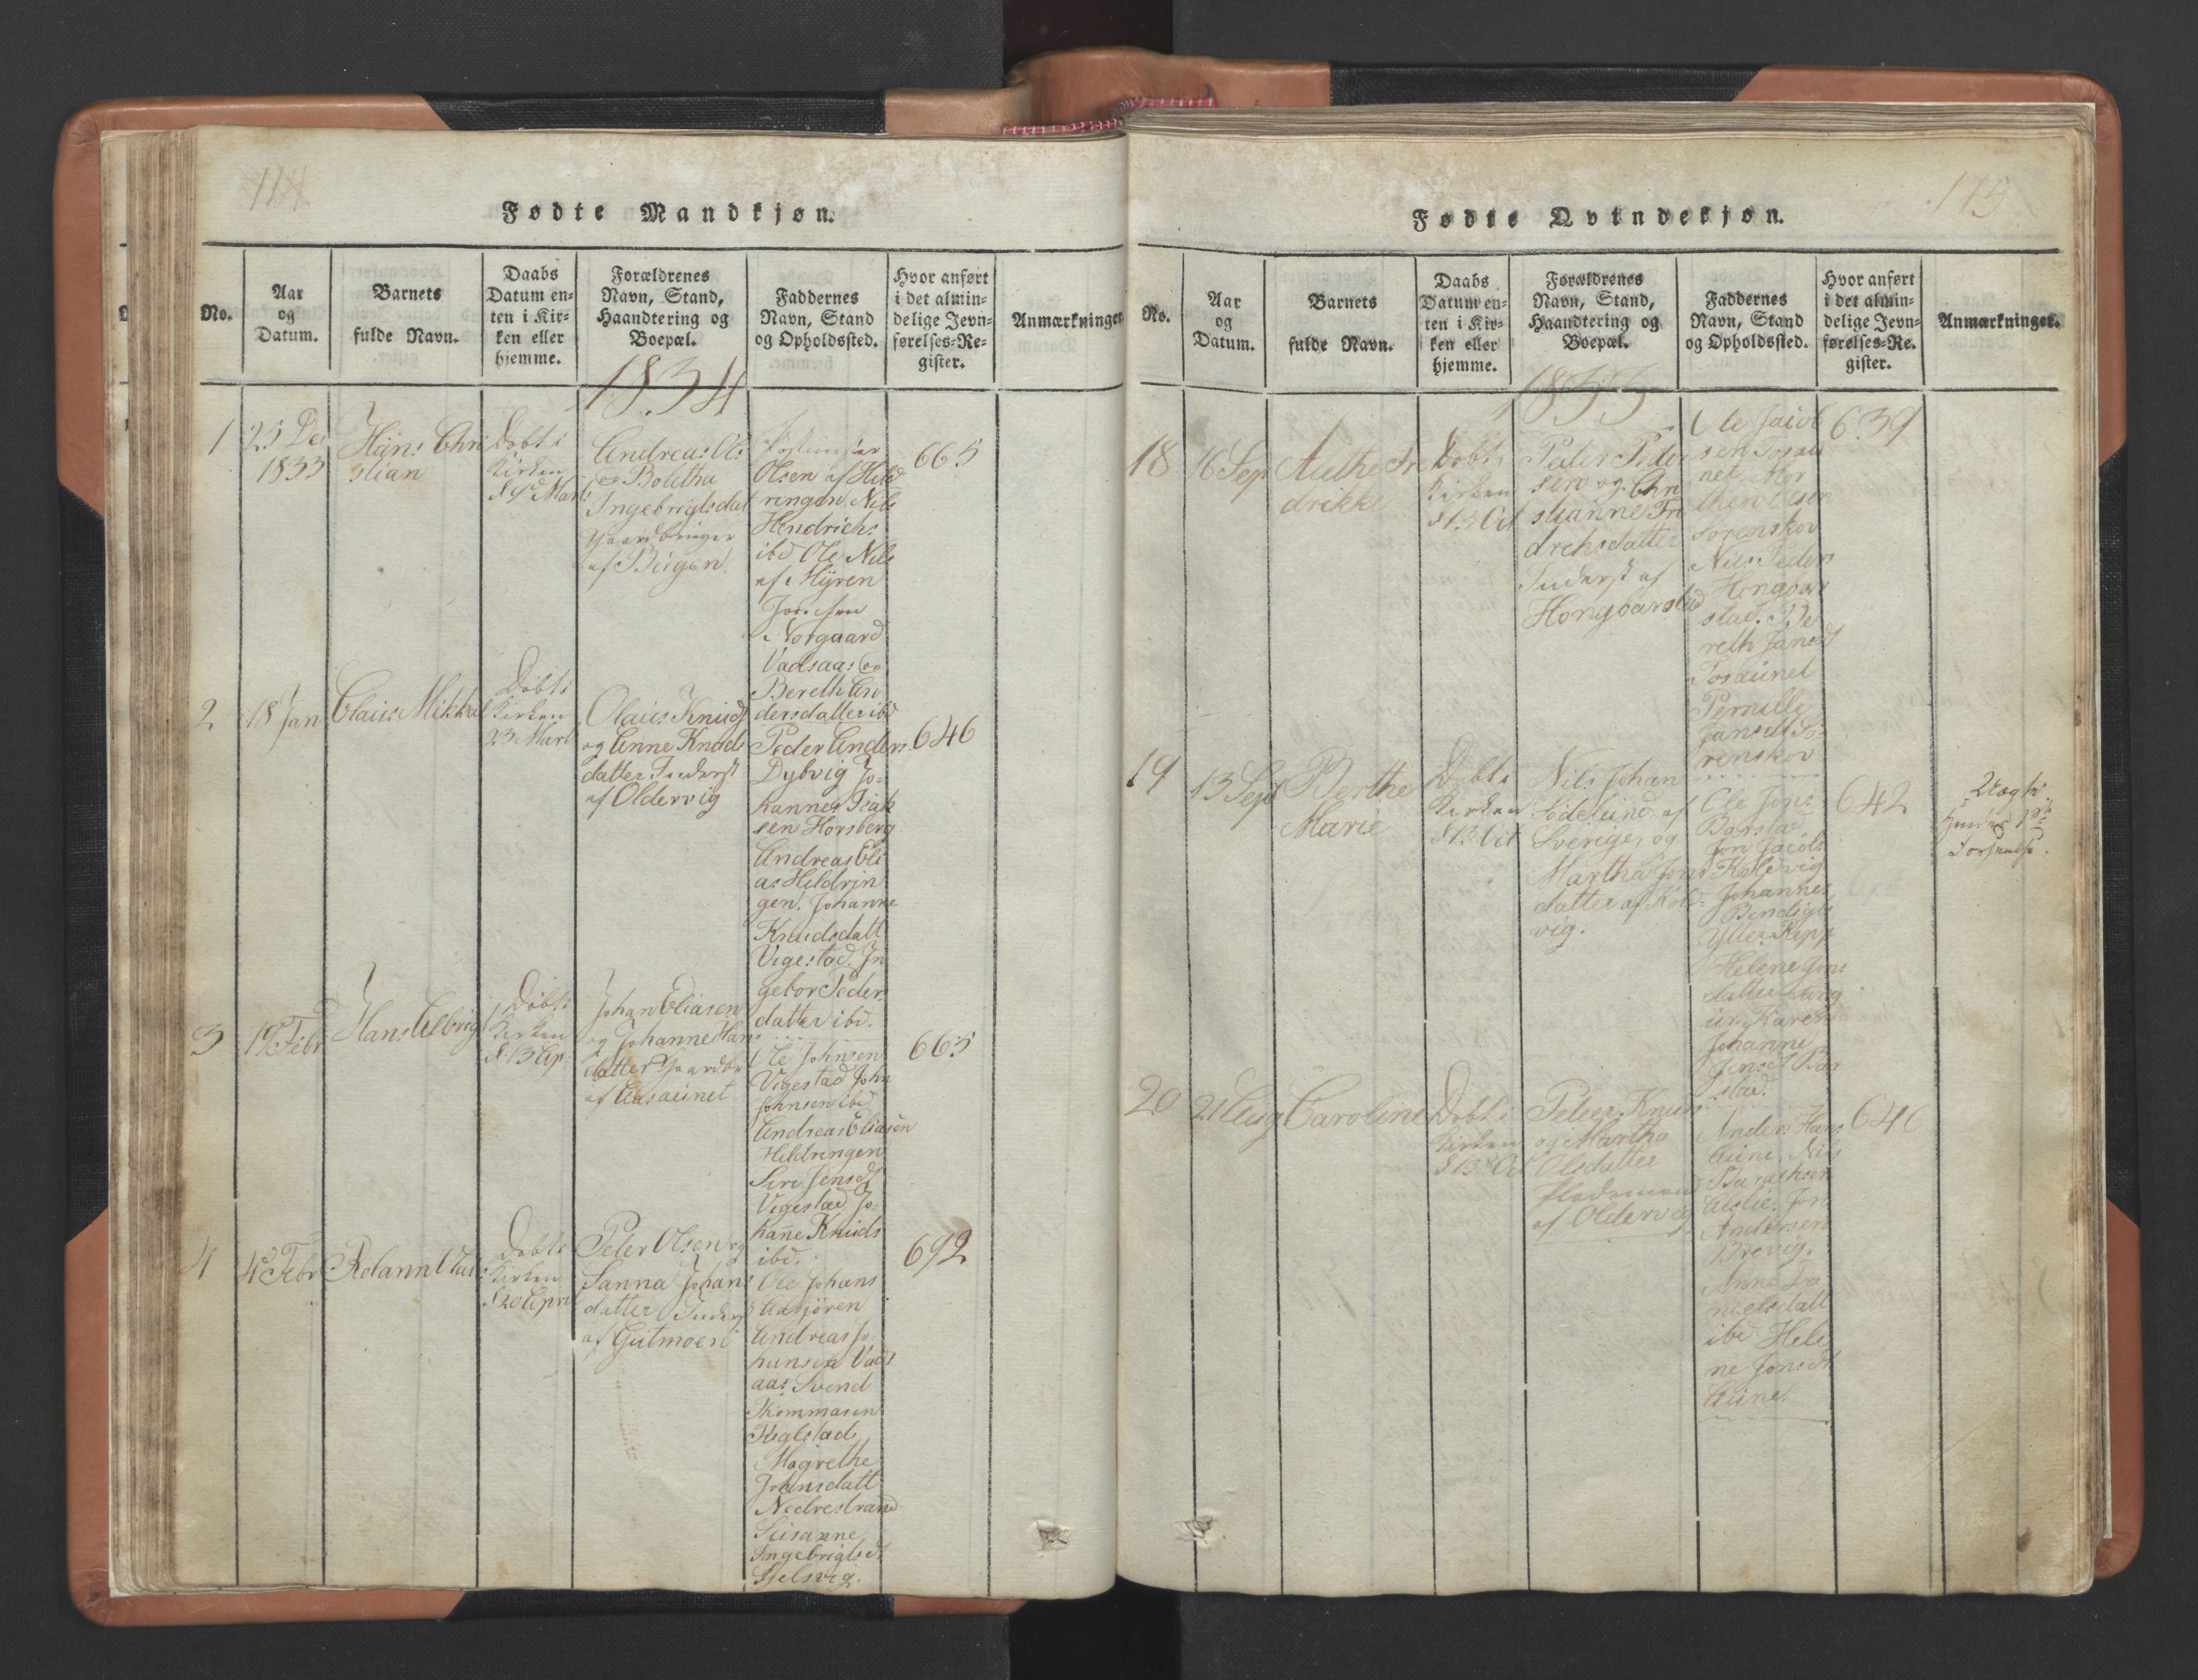 114
Fødte Mandkjøn.
No.
Aar
og
Datum.
Barnets
fulde Navn.
Daabs
Datum en-
ten i Kir-
ken eller
hjemme.
Forældrenes
Navn, Stand,
Haandtering og
Boepæl.
Faddernes
Navn, Stand
og Opholdssted.
Hvor anført
i det almin-
delige Jevn-
førelses-Re-
gister.
Anmærkninger
1834
1
23 De
1833
Hans Chri
stian
Døbt i
Kirken
Andreas Ols
og Boletha
Ingebrigtsdat
af Bÿgen
Olsen af Hild
ringen Nils
Hendrichs
ibd Ole Nils
af Mÿren
Norgaard
Vadsaas og
Bereth An
dersdatter ibd
665
2
18 Jan
Claus Mikkal
Døbt i
Kirken
23 Mart
Olaus Knudſ
og Anne Knuds
datter Inderst
af Oldervig
Peder Anders
Dybvig Jo-
hannes Isak
sen Horsberg
Andreas Eli
as Heldrin
gen. Johanne
Knudsdatt
Vigestad. In
gebor Peders
datter ibd.
646
3
19 Febr
Hans Albrigt
Døbt i
Kirken
d. 13 Ap
Johan Eliasen
og Johanne Hans
datter Gaardbr
af Aasaunet
Ole Johnsen
Vigestad John
Johnsen ibd
Andreas Eliasen
Heldringen
Siri Jensd
Vigestad Jo-
hane Knuds
ibd.
665
4
4 Febr
Rolann Olaus
Døbt i
Kirken
d 20 April
Peter Olsen og
Sanna Johans
datter Inderst
af Gutmoen
Ole Johans
Aasjøren
Andreas Jo
hansen Vads
aas Svend
Thommasen
Fuglstad
Magrethe
Johnsdatt
Nedrestrand
Susanne
Ingebrigtsd
Helsvig.
692
115
Fødte Qvindekjøn.
No.
Aar
og
Datum.
Barnets
fulde Navn.
Daabs
Datum en-
ten i Kir-
ken eller
hjemme.
Forældrenes
Navn, Stand,
Haandtering og
Boepæl.
Faddernes
Navn, Stand
og Opholdssted.
Hvor anført
i det almin-
delige Jevn-
førelses-Re-
gister.
Anmærkninger.
1833
18
16 Sep
Aلethe Fre
drikke
Døbt i
Kirken
d 13 Oct
Peder Peder
sen og Chri
stianne Fri
drchsdatter
Inderst af
Hongbarstad
Ole Jacob
sen Tosau
net Mor
then Olsen
Sørenskov
Nils Peders
Hongbar
stad. Be
reth Jansd
Tosaunet
Pernille
Jansdt Sø-
renskov
639
19
13 Sept
Berthe
Marie
Døbt i
Kirken
d 13 Oct
Nils Johan
Sødelund af
Sverige, og
Martha Jons
datter af Kol-
vig.
Ole Jons
Barstad
Jon Jacobs
Kolevig
Johannes
Bendigts
Ytter Repp
Helene Jons
datter
Karen
Johanne
Jensd Bar
stad.
642
Uægte
20
21 Aug
Caroline
Døbt i
Kirken
d. 13 Oct
Peter Knuds
og Martha
Olsdatter
af Oldervig
Anders Hans
Aune. Nils
Jon
Andersen
Brevig.
Anne Da
nielsdatt
ibd Hele
ne Jonsdt
Aune.
646